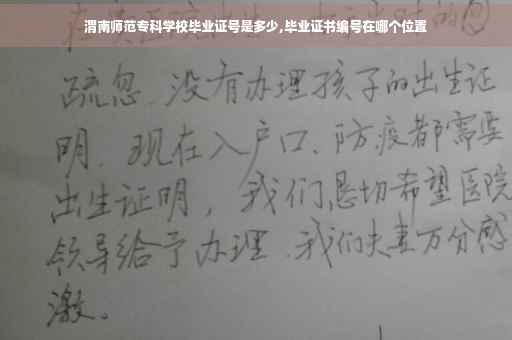 渭南师范专科学校毕业证号是多少,毕业证书编号在哪个位置
疏忽、没有办理孩子的出生证
明、现在入户口、防疫都需要
出生证明，我们恳切希望医院
领导给予办理、我们夫妻万分感
激。